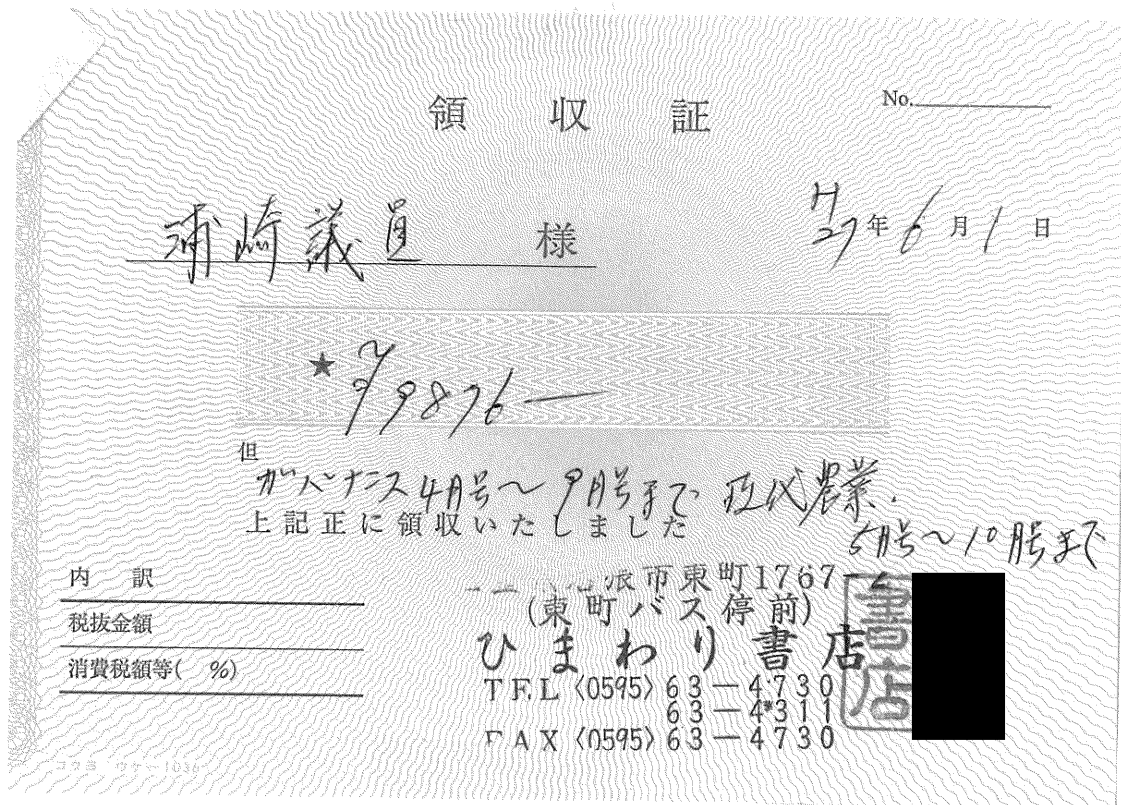 領収証
No.
浦崎議員 様
H27年6月1日
★ ¥9876—
但
ガバナンス4月号〜9月号まで 現代農業.
5月号〜10月号まで
上記正に領収いたしました
内訳
税抜金額
消費税額等( %)
張市東町1767-2
(東町バス停前)
ひまわり書店
TEL〈0595〉63-4730
63-4311
FAX〈0595〉63-4730
書店
コクヨ ウケ-1036